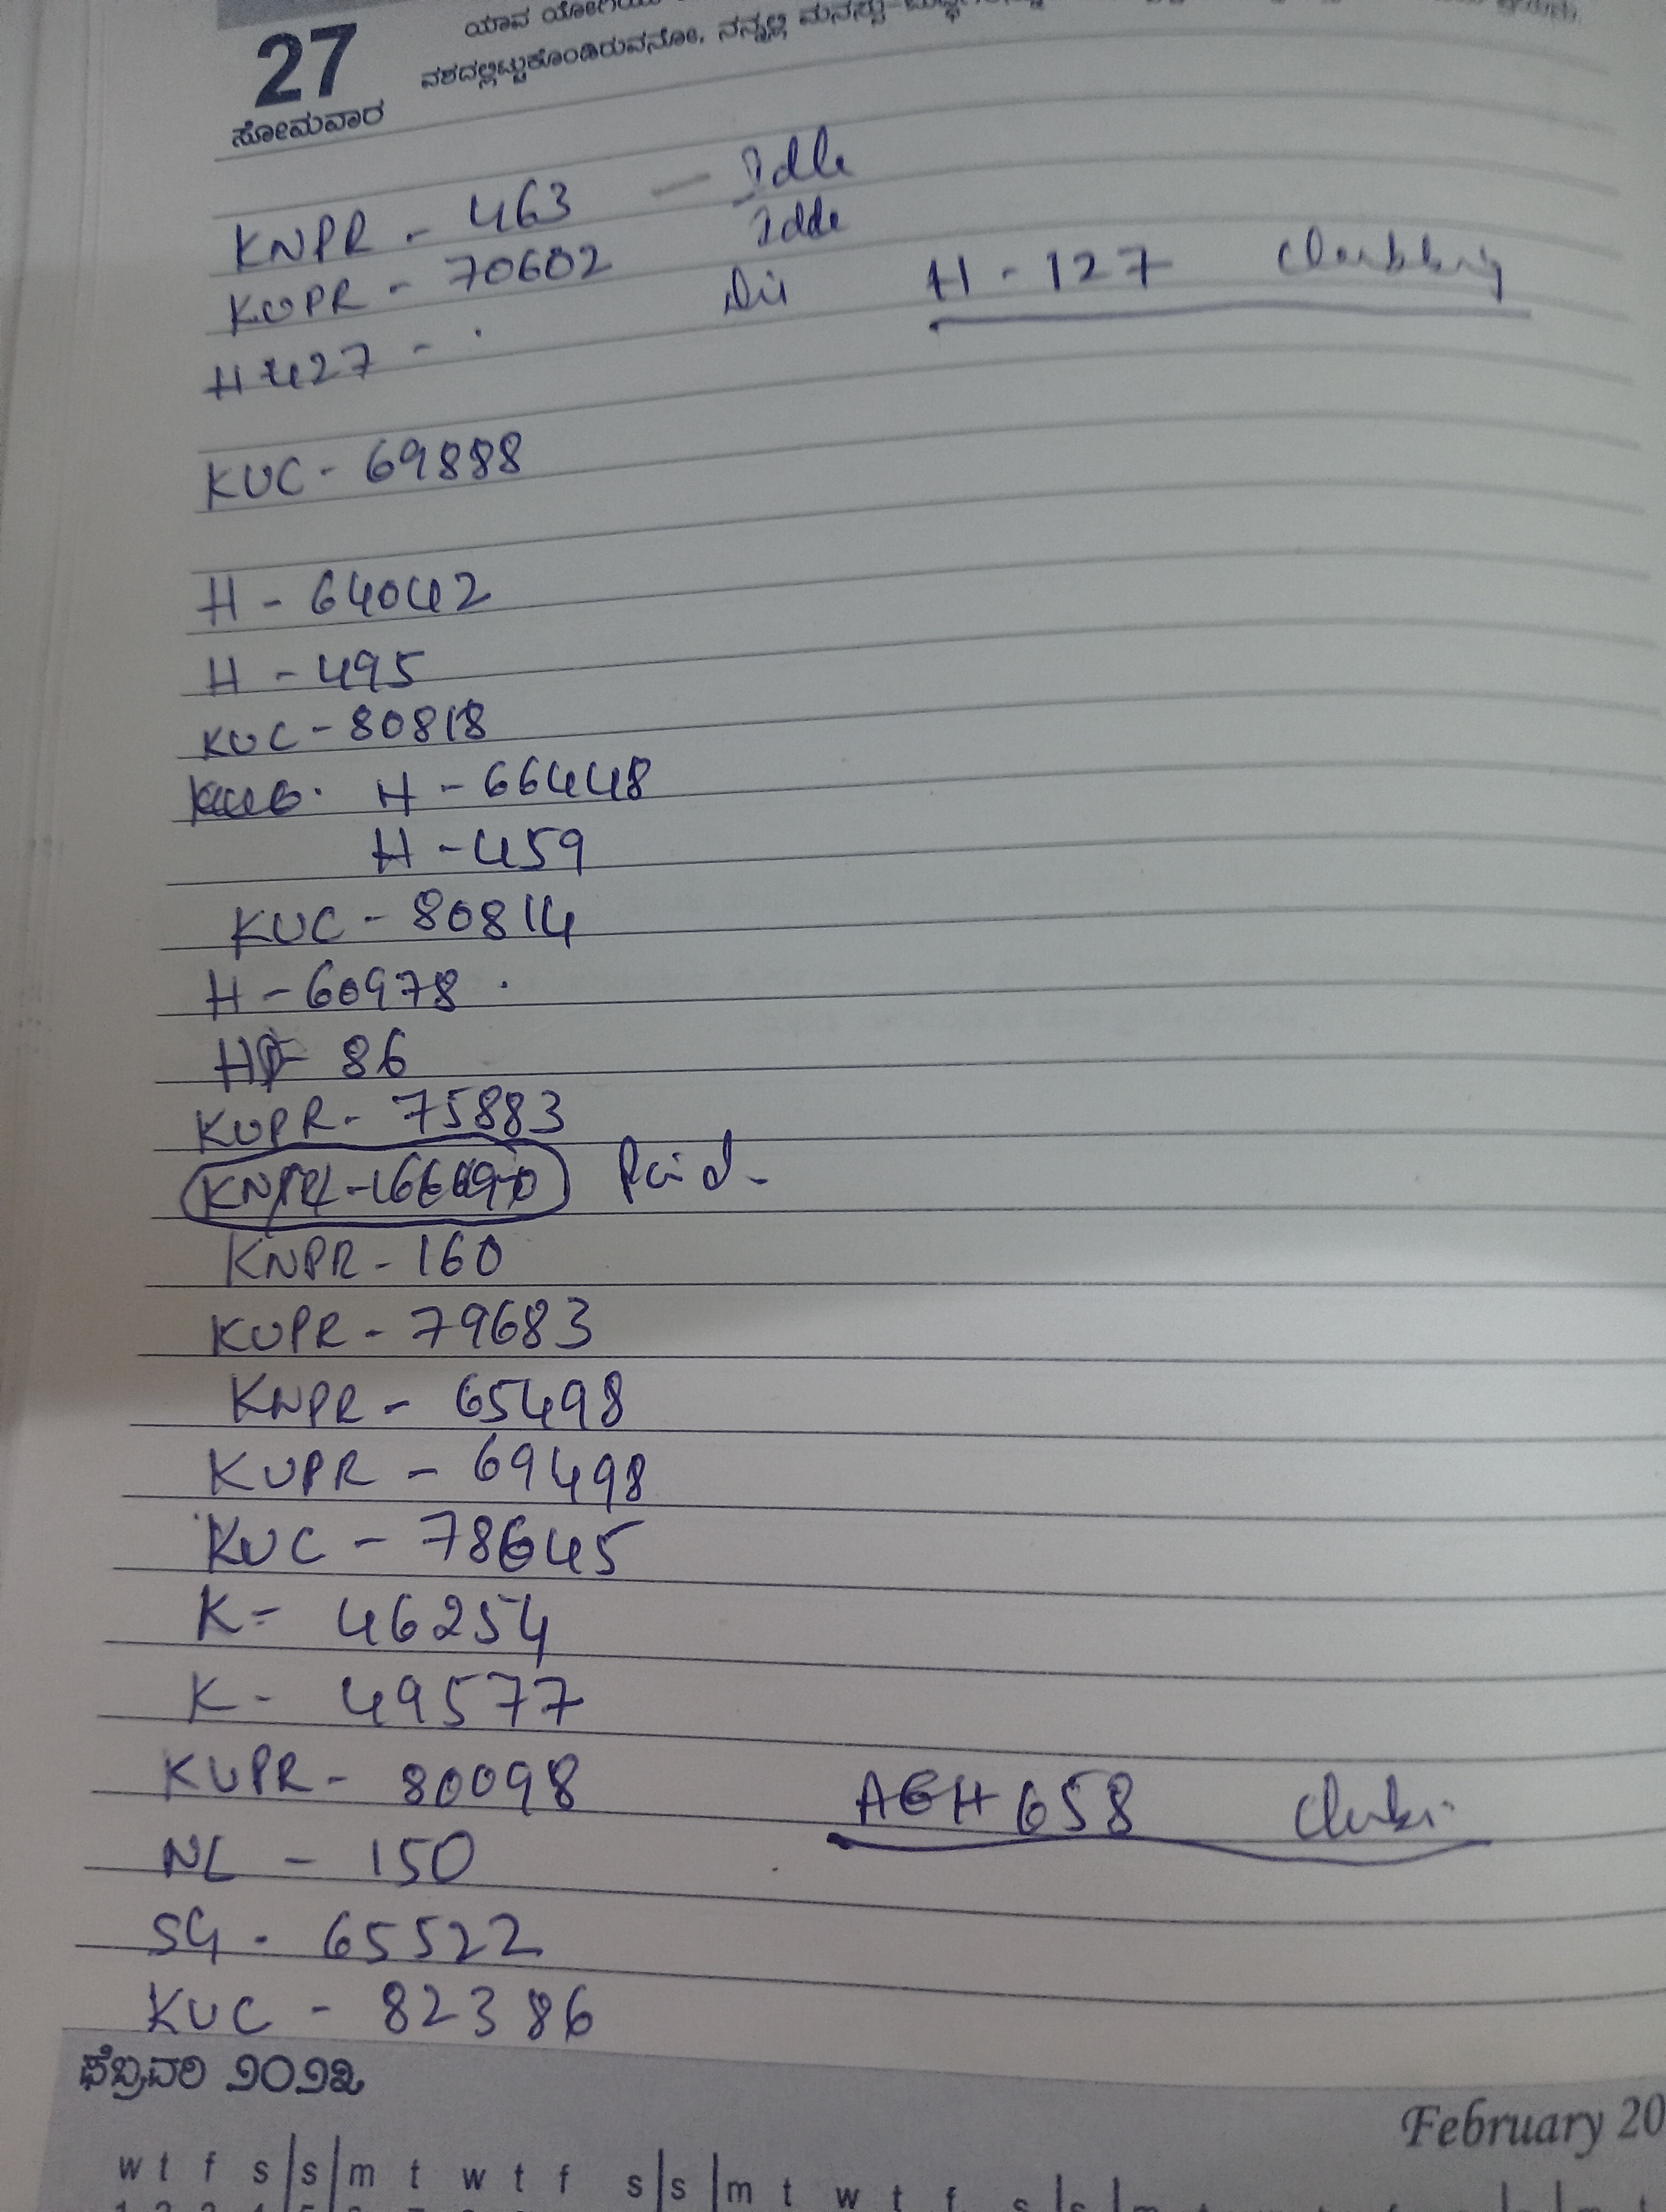 27
ಸೋಮವಾರ
ಯಾವ
ವಶದಲ್ಲಿಟ್ಟುಕೊಂಡಿರುವನೋ, ನನ್ನಲ್ಲಿ ಮನಸ್ಸು-
KNPR - 463 — Idle
KUPR - 70602 Idle
H 427 - H - 127 Clubbing
KUC - 69888
H - 64042
H - 495
KUC - 80818
H - 66448
H - 459
KUC - 80814
H - 60978
86
KUPR - 75883
Paid -
KNPR - 160
KUPR - 79683
KNPR - 65498
KUPR - 69498
KUC - 78645
K - 46254
K - 49577
KUPR - 80098 AGH 658
NL - 150
SG - 65522
KUC - 82386
ಫೆಬ್ರವರಿ ೨೦೨೩
February 20
w t f s s m t w t f s s m t w t f s s m